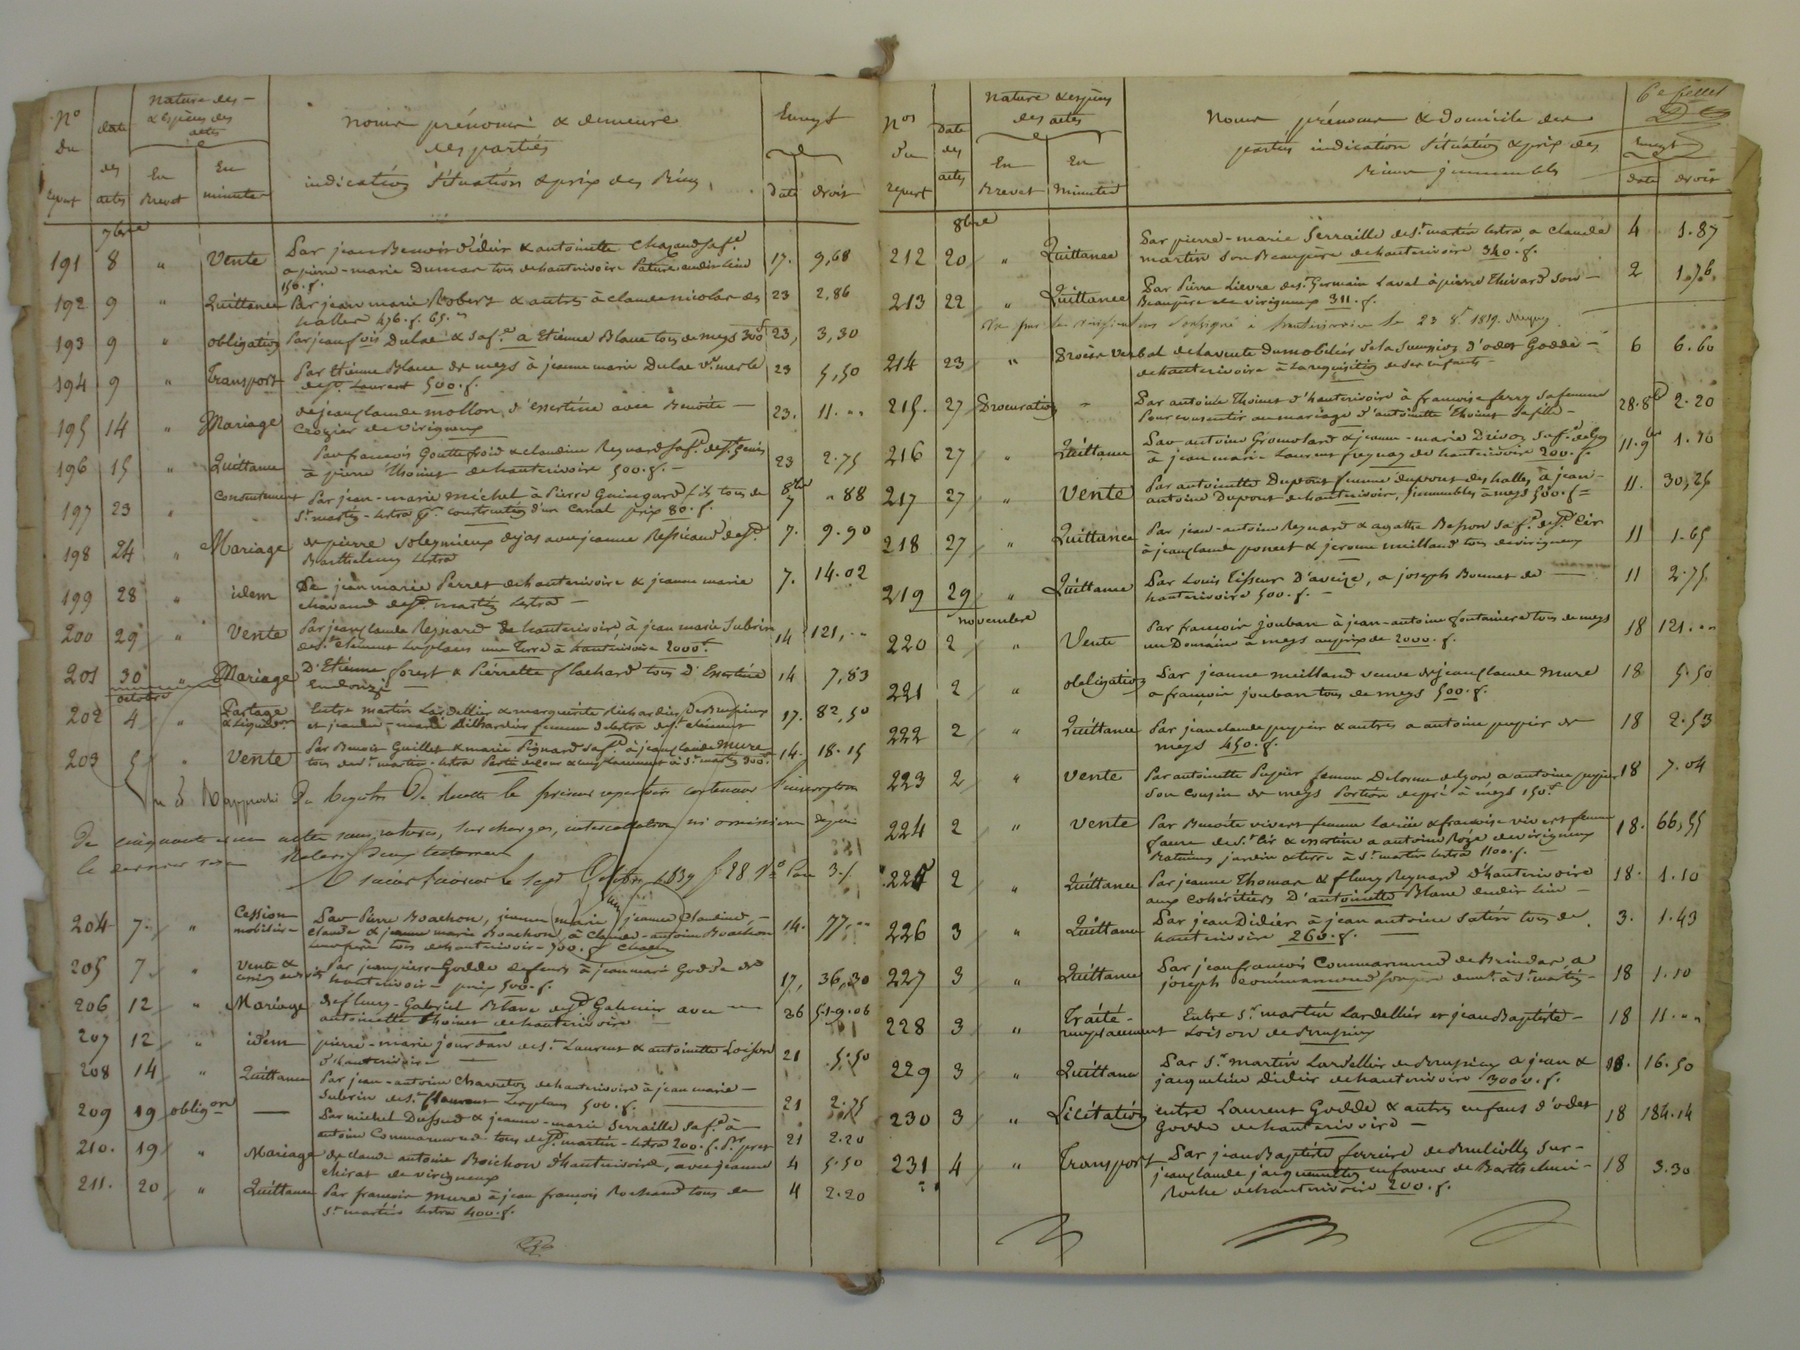 No du repert
date des actes
nature des & espèces des actes
En Brevet
En minute
noms prénoms & demeure
des parties
indication situation & prix des Biens
Enregt
date
droit
7bre
191 8 " Vente Par jean Benoit Didier & antoinette Chazaud sa fe
a pierre-marie Dumas tous de hauterivoire Pature audit lieu 17. 9,68
150. f.
192 9 " Quittance Par jean marie Robert & autres à claude nicolas des 23 2,86
halles 476. f. 65. c
193 9 " obligation Par jean fois Dulac & sa fe a Etienne Blanc tous de meys 300 f 23, 3,30
194 9 " Transport Par Etienne Blanc de meys à jeanne marie Dulac ve merle 23 5,50
de st Laurent 500. f.
195 14 " Mariage de jean claude mollon d'essertine avec Benoite 23. 11. ..
Crozier de virigneux
196 15 " Quittance Par francois Gouttefroid & claudine Reynard sa fe de st Genis
à pierre Thoinet de hauterivoire 500. f. 23 2.75
8bre
197 23 " Consentement Par jean-marie michel à Pierre Guingard fils tous de 7 " 88
st martin-lestra pr construction d'un Canal prix 80. f.
198 24 " Mariage de pierre Soleymieux dejas avec jeanne Ressicaud de st 7. 9.90
Barthelemy lestra
199 28 " idem De jean marie Perret de hauterivoire & jeanne marie 7. 14.02
chavand de st martin lestra
200 29 " Vente Par jean claude Reynard de hauterivoire à jean marie Subrin 14 121, ..
de st clément les places une Terre à hauterivoire 2000 f.
201 30 " Mariage D'Etienne forest & Pierrette flachard tous d'Essertine 14 7,83
en donzy
octobre
202 4 " Partage & liquidon Entre martin Lardellier & marguerite Richardier De Brussieux 17. 82,50
203 5 " Vente Par Benoit Guillet & marie Pignard sa fe à jean claude mure 14. 18.15
tous de st martin-lestra
204 7. " Cession mobilière Par Pierre Boachon, jeanne marie, jeanne Claudine, 14. 77. ..
claude & jeanne marie Boachon, à Claude-antoine Boachon
leur frère tous de hauterivoire 700. f. chacun
205 7 " Vente & cession de droits Par jean pierre Godde de feurs à jean marie Godde de 17, 36,30
hauterivoire prix 500. f.
206 12 " Mariage de fleury-Gabriel Blanc de st Galmier avec 26
antoinette Thoinet de hauterivoire
207 12 " idem pierre-marie jourdan de st Laurent & antoinette Loison 21 5.50
d'hauterivoire
208 14 " Quittance Par jean-antoine Charreton de hauterivoire à jean marie
Subrin de st clément les places 500. f. 21 2.75
209 19 obligon Par michel Dussud & jeanne-marie Serraille sa fe à
antoine Commarmond tous de st martin-lestra 200. f. 21 2.20
210. 19 " Mariage de claude antoine Boichon d'hauterivoire, avec jeanne 4 5.50
chirat de virigneux
211. 20 " Quittance Par francois mure à jean francois Rochand tous de 4 2.20
st martin lestra 400. f.
6e feillet
Nos du repert
date des actes
nature & espèces des actes
En Brevet
En minute
noms prénoms & domicile des
parties indication situation & prix des
Biens immeubles
Enregt
date
droit
8bre
212 20 " Quittance Par pierre-marie Serraille de st martin lestra a claude 4 1.87
martin son Beaupère de hauterivoire 340. f.
213 22 " Quittance Par Pierre Lievre de st Germain Laval à pierre Thivard son 2 1,76.
Beaupère de virigneux 311. f.
214 23 " Procès verbal de la vente du mobilier de la succession d'odet Godde 6 6.60
de hauterivoire à la requisition de ses enfants
215. 27 Procuration " Par antoine Thoinet d'hauterivoire à francoise ferry sa femme 28.8e 2.20
Pour consentir au mariage d'antoinette Thoinet sa fille
216 27 " Quittance Par antoine Grimolard & jeanne-marie 11.9bre 1.10
à jean marie Laurent de hauterivoire 200. f.
217 27 " Vente Par antoinette Dupont femme dupont des halles à jean 11. 30,25
antoine Dupont de hauterivoire, immeubles à meys 500. f
218 27 " Quittance Par jean-antoine Reynard & agathe Besson sa fe de st Cir
à jean claude poncet & jerome meilland tous de virigneux 11 1.65
219 29 " Quittance Par Louis Tisseur D'aveize, a joseph Bonnet de 11 2.75
hauterivoire 500. f.
novembre
220 2 " Vente Par francois jouban à jean-antoine fontanière tous de meys 18 121. ..
un Domaine à meys au prix de 2000. f.
221 2 " obligation Par jeanne meilland veuve de jean claude mure 18 5.50
a francois jouban tous de meys 500. f.
222 2 " Quittance Par jean claude pupier & autres a antoine pupier de 18 2.53
meys 450. f.
223 2 " Vente Par antoinette Pupier femme Delorme de lyon a antoine pupier 18 7.04
son cousin de meys Portion de pré à meys 150. f
224 2 " Vente Par Benoite vivert femme & francoise vivert femme
faure de st Cir & essertine a antoine Rozé de virigneux 18. 66,55
Batimens jardin & terre à st martin lestra 1100. f.
225 2 " Quittance Par jeanne Thomas & fleury Reynard d'hauterivoire 18. 1.10
aux cohéritiers D'antoinette Blanc dudit lieu
226 3 " Quittance Par jean Didier à jean antoine Satin tous de 3. 1.43
hauterivoire 260. f.
227 3 " Quittance Par jean francois Commarmond de Brindas a 18 1.10
joseph Commarmond son frère demt à st martin
228 3 " Traité-remplacement Entre st martin Lardellier et jean Baptiste 18 11. ..
Loison de Brussieux
229 3 " Quittance Par st martin Lardellier de Brussieux a jean & 18. 16.50
jacqueline Didier de hauterivoire 3000. f.
230 3 " Licitation entre Laurent Godde & autres enfans d'odet 18 184.14
Godde de hauterivoire
231 4 " Transport Par jean Baptiste ferriere de Brullioles sur 18 3.30
jean claude jacquemetton en faveur de Barthelemi
Roche de hauterivoire 200. f.